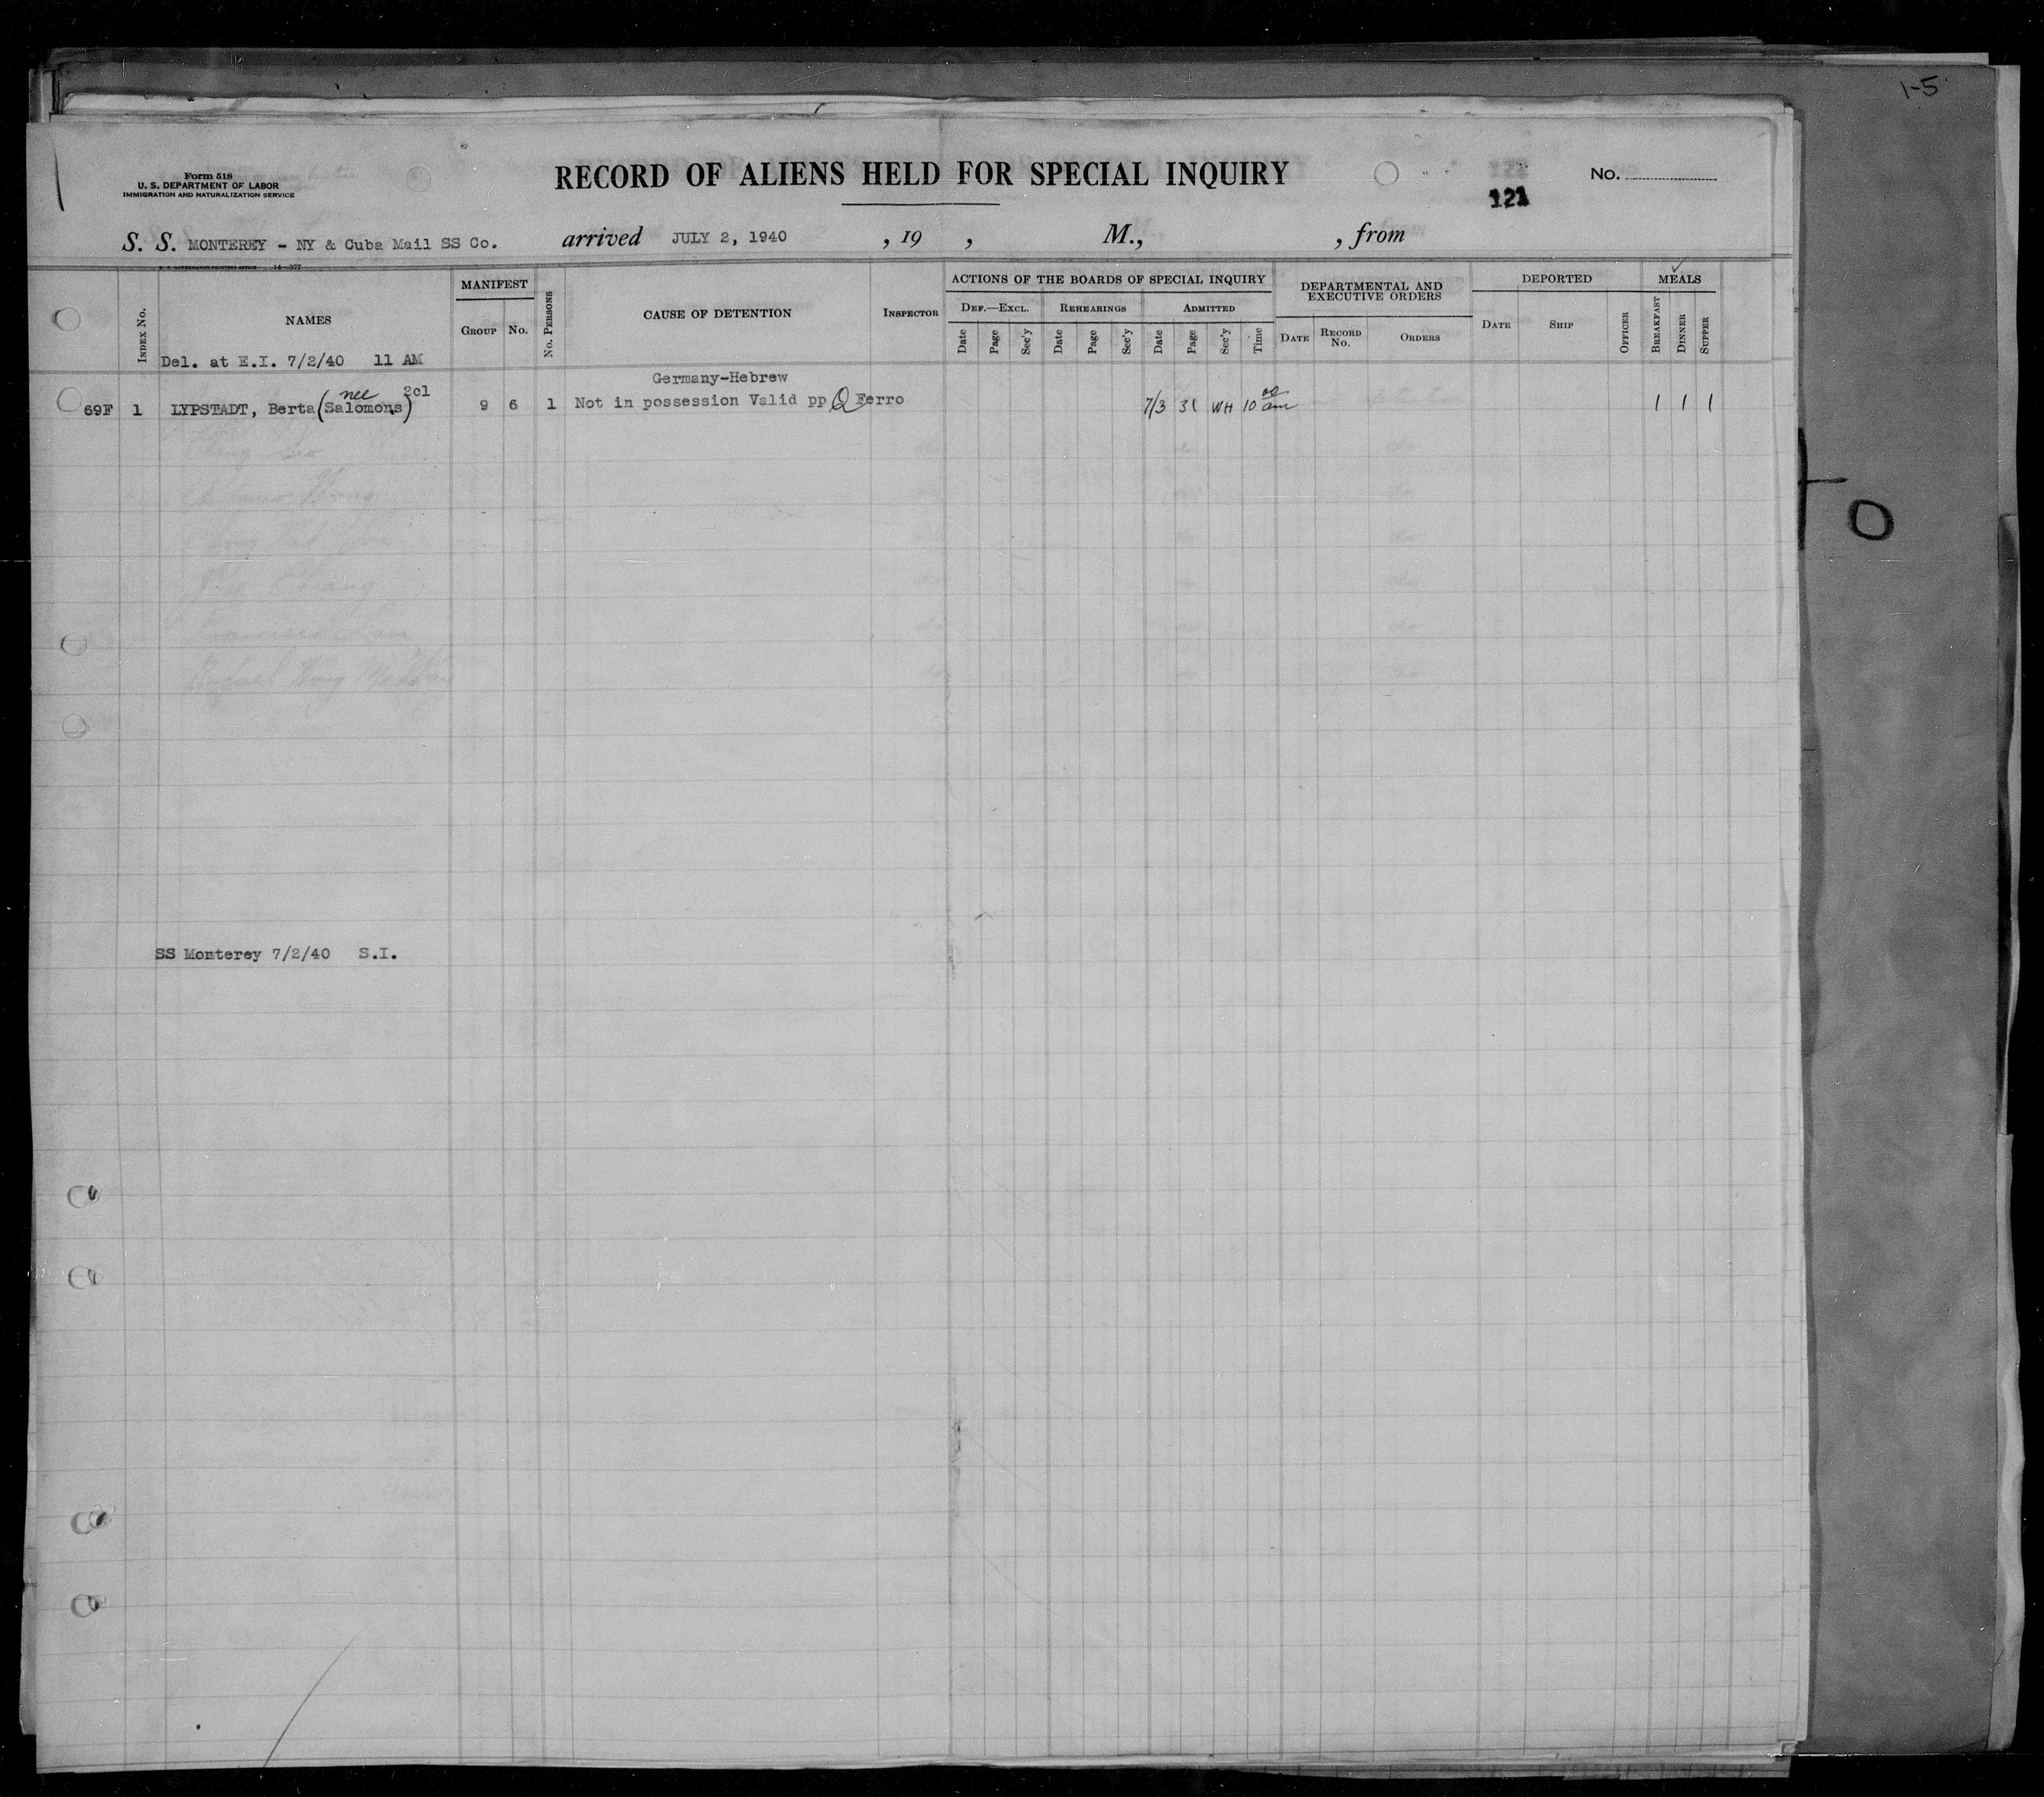 1-5
Form 518
U. S. DEPARTMENT OF LABOR
IMMIGRATION AND NATURALIZATION SERVICE
RECORD OF ALIENS HELD FOR SPECIAL INQUIRY
No.
121
S. S. MONTEREY - NY & Cuba Mail SS Co. arrived JULY 2, 1940 , 19 , M., , from
U. S. GOVERNMENT PRINTING OFFICE 14-577
INDEX No.
NAMES
MANIFEST
GROUP No.
No. PERSONS
CAUSE OF DETENTION
INSPECTOR
ACTIONS OF THE BOARDS OF SPECIAL INQUIRY
DEF.—EXCL. REHEARINGS ADMITTED
Date Page Sec'y Date Page Sec'y Date Page Sec'y Time
DEPARTMENTAL AND EXECUTIVE ORDERS
DATE RECORD No. ORDERS
DEPORTED
DATE SHIP OFFICER
MEALS
BREAKFAST DINNER SUPPER
Del. at E.I. 7/2/40 11 AM
Germany-Hebrew
69F 1 LYPSTADT, Berta (nee Salomons) 2cl 9 6 1 Not in possession Valid pp Q Ferro 7/3 31 WH 10 00 am 1 1 1
O
SS Monterey 7/2/40 S.I.